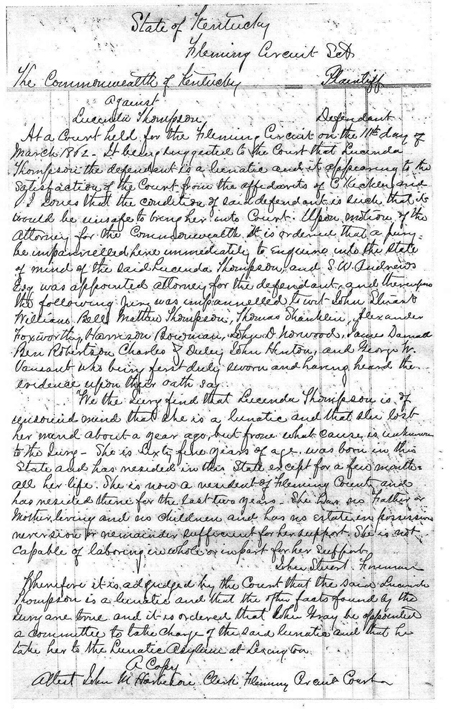 State of Kentucky
Fleming Circuit Sct
The Commonwealth of Kentucky Plaintiff
Against
Lucinda Thompson, Defendant
At a Court held for the Fleming Circuit on the 11th day of
March 1862 - It being suggested to the Court that Lucinda
Thompson the defendant is a lunatic and it appearing to the
satisfaction of the Court from the affidavits of and
J Jones that the condition of said defendant is such, that it
would be unsafe to bring her into Court. Upon motion of the
Attorney for the Commonwealth it is ordered that a jury
be impannelled here immediately to enquire into the state
of mind of the said Lucinda Thompson, and S. W. Andrews
Esq was appointed attorney for the defendant, and thereupon
the following Jury was impannelled to wit John Stewart
William Bell, Matthew Thompson, Thomas Shanklin, Alexander
Foxworthy Harrison Bowman, John D Norwood, James
Ben Robertson Charles Duley John Hinton, and George W.
Vansant who being first duly sworn and having heard the
evidence upon their oath say
We the Jury find that Lucinda Thompson is of
unsound mind that she is a lunatic and that she lost
her mind about a year ago, but from what cause is unknown
to the Jury - She is sixty five years of age. was born in this
State and has resided in this State except for a few months
all her life. She is now a resident of Fleming County and
has resided there for the last two years. She has no Father or
Mother living and no children and has no estate in possession
reversion or remainder sufficient for her support. She is not
capable of laboring in whole or in part for her support
John Stewart Foreman
Wherefore it is adjudged by the Court that the said Lucinda
Thompson is a lunatic and that the other facts found by the
Jury are true and it is ordered that John Gray be appointed
a Committee to take charge of the said lunatic and that he
take her to the Lunatic Asylum at Lexington
A Copy
Attest John M Clerk Fleming Circuit Court